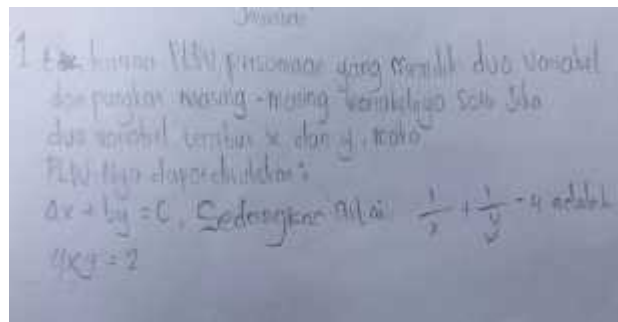 Jawaban
1 karena PLDV persamaan yang memiliki dua variabel
dan pangkat masing-masing variabelnya satu Jika
dua variabel tersebut x dan y, maka
PLDV nya dapat dituliskan :
ax + by = C, Sedangkan Nilai 1/x + 1/y = 4 adalah
4xy = 2